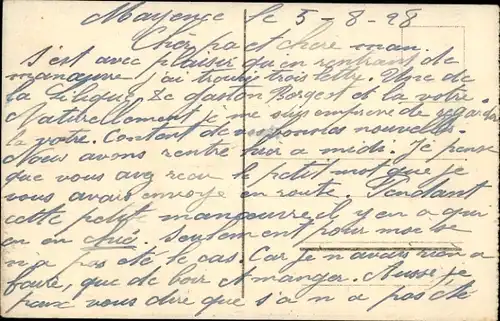 Mayence le 5-8-28
Cher pa et chere man.
s'est avec plaisir qu'en rentrant de
manœuvre j'ai trouvé trois lettr. Une de
la . De Gaston Berget et la votre.
Naturellement je me suis empresse de regarder
la votre. Contant de vos bonnes nouvelles.
Nous avons rentré hier a midi. Je pense
que vous avez recu le petit mot que je
vous avais envoyé en route. Pendant
cette petite manouvre il y en a qui
en on chié. Seulement pour moi se
n'a pas été le cas. Car je n'avais rien a
faire, que de boir et manger. Aussi je
peux vous dire que s'a n'a pas été